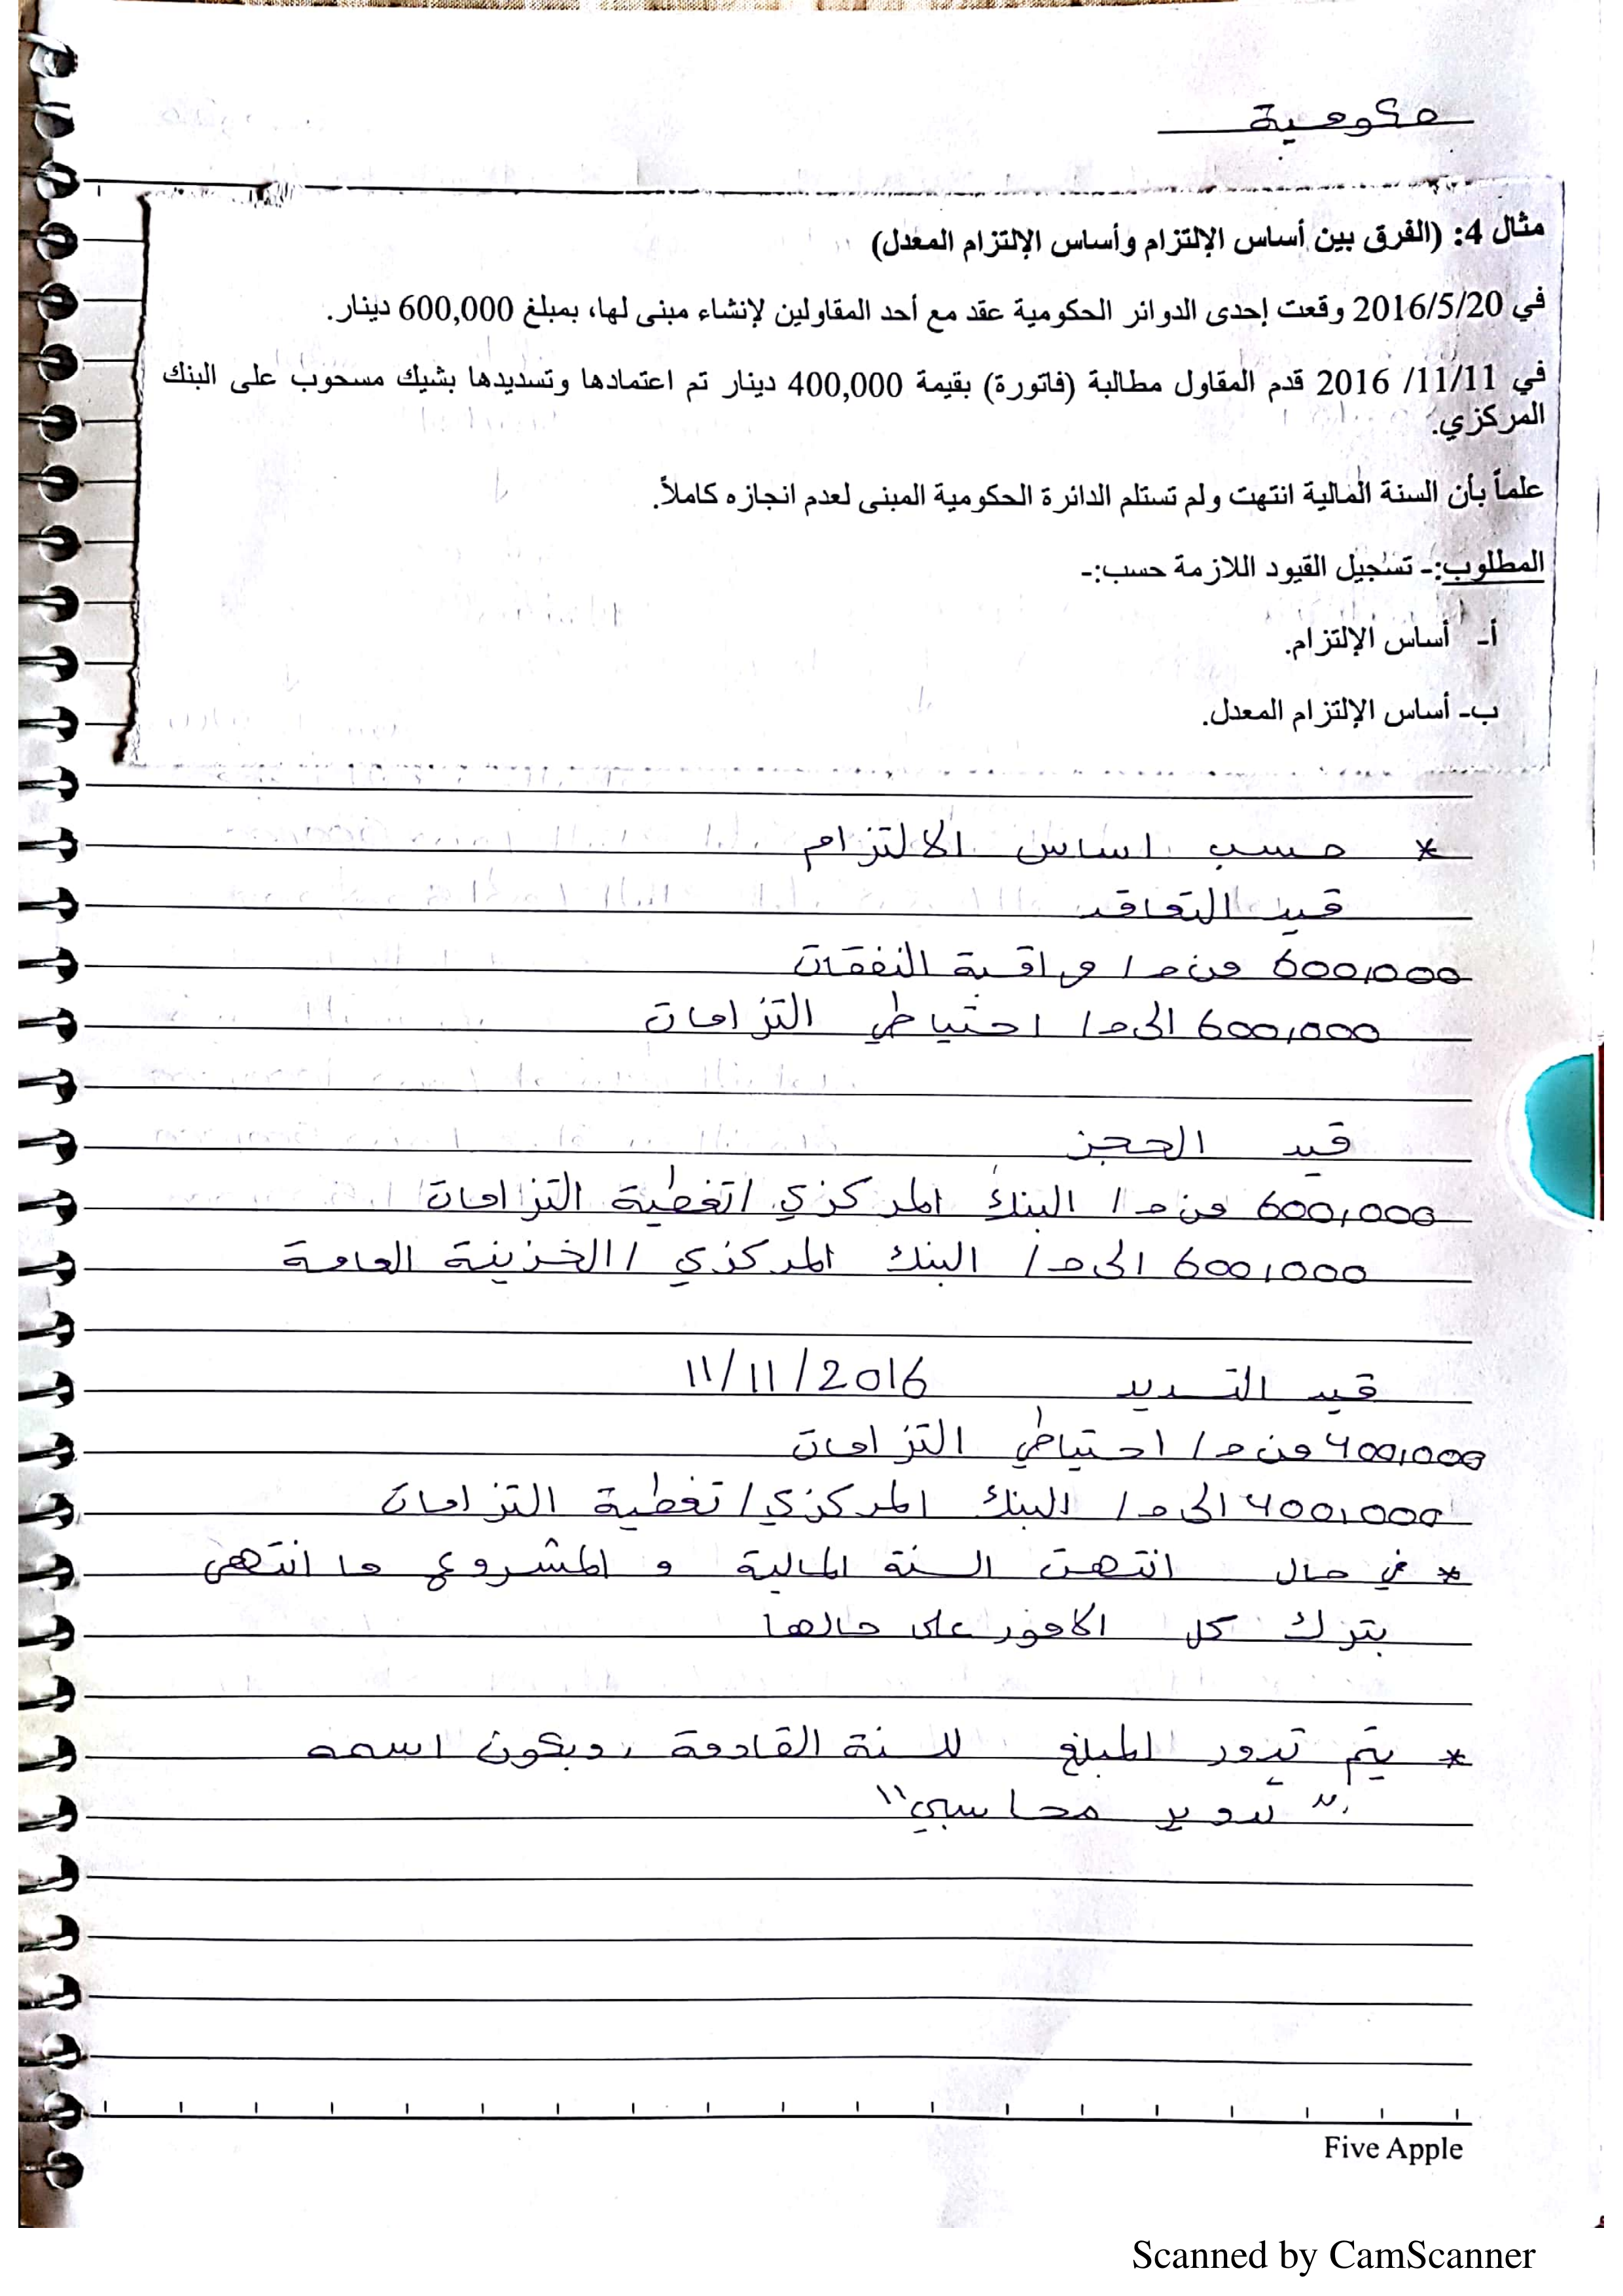 حكومية
مثال 4: (الفرق بين أساس الإلتزام وأساس الإلتزام المعدل)
في 2016/5/20 وقعت إحدى الدوائر الحكومية عقد مع أحد المقاولين لإنشاء مبنى لها، بمبلغ 600,000 دينار.
في 11/11/ 2016 قدم المقاول مطالبة (فاتورة) بقيمة 400,000 دينار تم اعتمادها وتسديدها بشيك مسحوب على البنك
المركزي.
علماً بأن السنة المالية انتهت ولم تستلم الدائرة الحكومية المبنى لعدم انجازه كاملاً.
المطلوب:- تسجيل القيود اللازمة حسب:-
أ- أساس الإلتزام.
ب- أساس الإلتزام المعدل.
* حسب اساس الالتزام
قيد التعاقد
600,000 من ح/ مراقبة النفقات
600,000 الى ح/ احتياطي التزامات
قيد الحجز
600,000 من ح/ البنك المركزي/تغطية التزامات
600,000 الى ح/ البنك المركزي/الخزينة العامة
قيد التسديد 11/11/2016
400,000 من ح/ احتياطي التزامات
400,000 الى ح/ البنك المركزي/تغطية التزامات
* في حال انتهت السنة المالية و المشروع ما انتهى
بترك كل الامور على حالها
* يتم تدور المبلغ للسنة القادمة، وبكون اسمه
"تدوير محاسبي"
Five Apple
Scanned by CamScanner